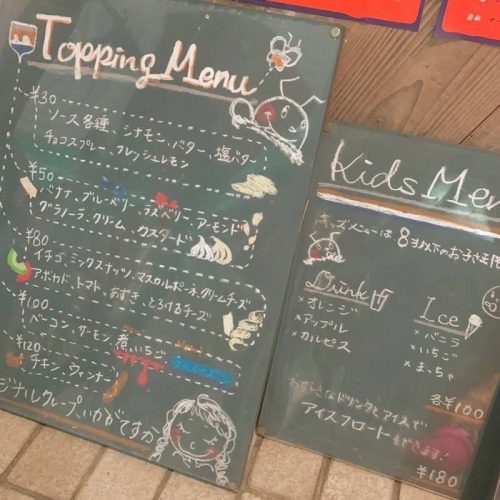 Topping Menu
¥30
ソース各種、シナモン、バター、塩バター
チョコスプレー、フレッシュレモン
¥50
バナナ、ブルーベリー、ラズベリー、アーモンド
グラノーラ、クリーム、カスタード
¥80
イチゴ、ミックスナッツ、マスカルポーネ、クリームチーズ
アボカド、トマト、あずき、とろけるチーズ
¥100
ベーコン、サーモン、煮いちご
¥120
チキン、ウィンナー
ジナルクレープ、いかがですか
Kids Men
キッズメニューは8才以下のお子さま
Drink
×オレンジ
×アップル
×カルピス
Ice
×バニラ
×いちご
×まっちゃ
各¥100
お好きなドリンクとアイスで
アイスフロートもできます!
¥180